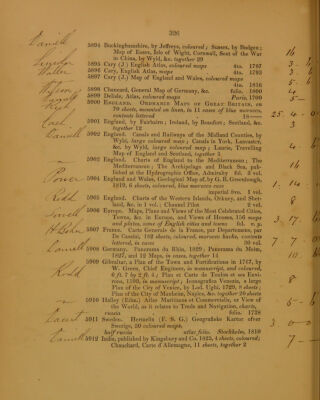 326
5894 Buckinghamshire, by Jefferys, coloured; Sussex, by Budgen;
Map of Essex, Isle of Wight, Cornwall, Seat of the War
in China, by Wyld, &c. together 29
5895 Cary (J.) English Atlas, coloured maps 4to. 1787
5896 Cary, English Atlas, maps 4to. 1793
5897 Cary (J.) Map of England and Wales, coloured maps
4to. 1816
5898 Chauvard, General Map of Germany, &c. folio. 1800
5899 Delisle, Atlas, coloured maps Paris, 1700
5900 ENGLAND. ORDNANCE MAPS OF GREAT BRITAIN, on
70 sheets, mounted on linen, in 11 cases of blue morocco,
contents lettered 18
5901 England, by Fairbairn; Ireland, by Beaufort; Scotland, &c.
together 12
5902 England. Canals and Railways of the Midland Counties, by
Wyld, large coloured map; Canals in York, Lancaster,
&c. by Wyld, large coloured map; Laurie, Travelling
Map of England and Scotland, together 5
5903 England. Charts of England to the Mediterranean; The
Mediterranean; The Archipelago and Black Sea, pub-
lished at the Hydrographic Office, Admiralty fol. 3 vol.
5904 England and Wales, Geological Map of, by G. B. Greenough,
1819, 6 sheets, coloured, blue morocco case
imperial 8vo. 1 vol.
5905 England. Charts of the Western Islands, Orkney, and Shet-
land, &c. in 1 vol.; Channel Pilot 2 vol.
5906 Europe. Maps, Plans and Views of the Most Celebrated Cities,
Towns, &c. in Europe, and Views of Houses, 156 maps
and plates, some of English cities and towns fol. v. y.
5907 France. Carte Generale de la France, par Departemens, par
De Cassini, 182 sheets, coloured, morocco backs, contents
lettered, in cases 30 vol.
5908 Germany. Panorama du Rhin, 1829; Panorama du Mein,
1827, and 12 Maps, in cases, together 14
5909 Gibraltar, a Plan of the Town and Fortifications in 1747, by
W. Green, Chief Engineer, in manuscript, and coloured,
6 ft. 7 by 2 ft.; Plan et Carte de Toulon et ses Envi-
rons, 1793, in manuscript; Iconografica Venezia, a large
Plan of the City of Venice, by Lod. Ughi, 1729, 8 sheets;
Plan of the City of Manheim, Naples, &c. together 20 sheets
5910 Halley (Edm.) Atlas Maritimus et Commercialis, or View of
the World, as it relates to Trade and Navigation, charts,
russia folio. 1728
5911 Sweden. Hermelin (F. S. G.) Geografiske Kartor ofver
Sverige, 30 coloured maps,
half russia atlas folio. Stockholm, 1810
5912 India, published by Kingsbury and Co. 1825, 4 sheets, coloured;
Chauchard, Carte d'Allemagne, 11 sheets, together 2